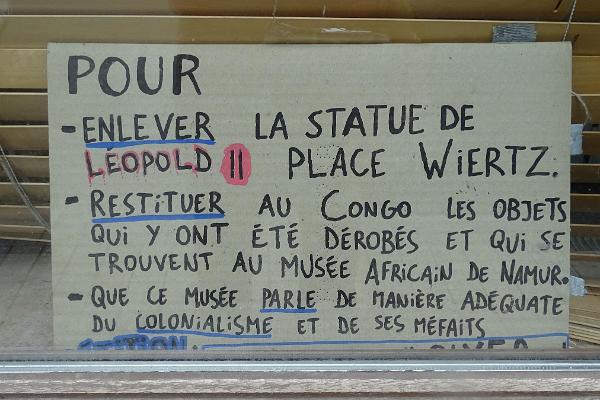 POUR
- ENLEVER LA STATUE DE
LÉOPOLD II PLACE WIERTZ.
- RESTITUER AU CONGO LES OBJETS
QUI Y ONT ÉTÉ DÉROBÉS ET QUI SE
TROUVENT AU MUSÉE AFRICAIN DE NAMUR.
- QUE CE MUSÉE PARLE DE MANIÈRE ADÉQUATE
DU COLONIALISME ET DE SES MÉFAITS